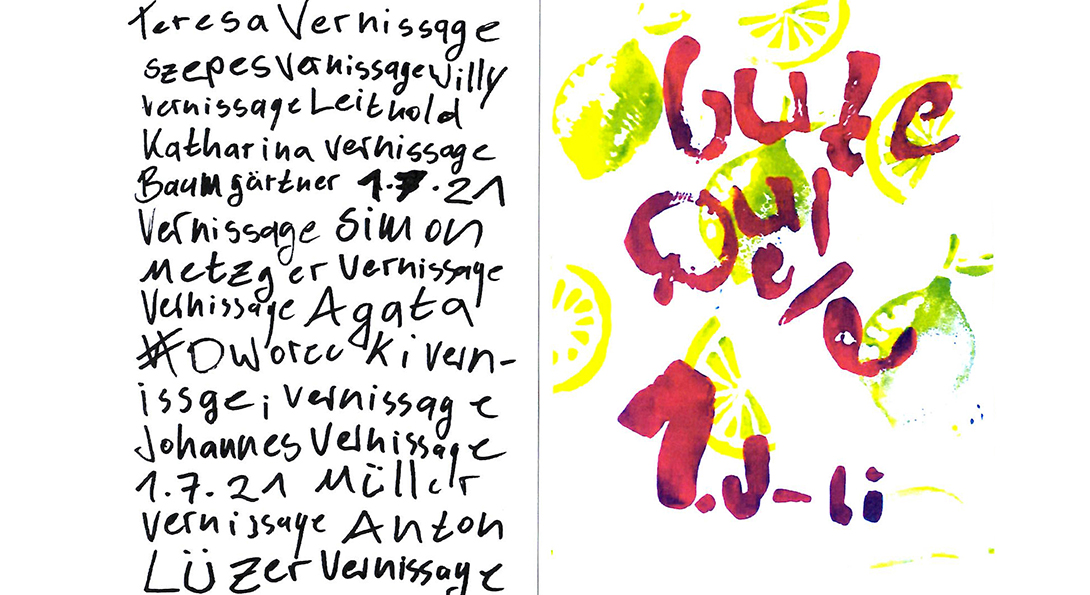 Teresa Vernissage
szepes Vernissage Willy
vernissage Leithold
Katharina vernissage
Baumgärtner 1.7.21
Vernissage Simon
Metzger Vernissage
Vernissage Agata
Dworecki vern-
issge; vernissage
Johannes Vernissage
1.7.21 Müller
vernissage Anton
Lüzer Vernissage
Gute
Quel
le
1. J-li